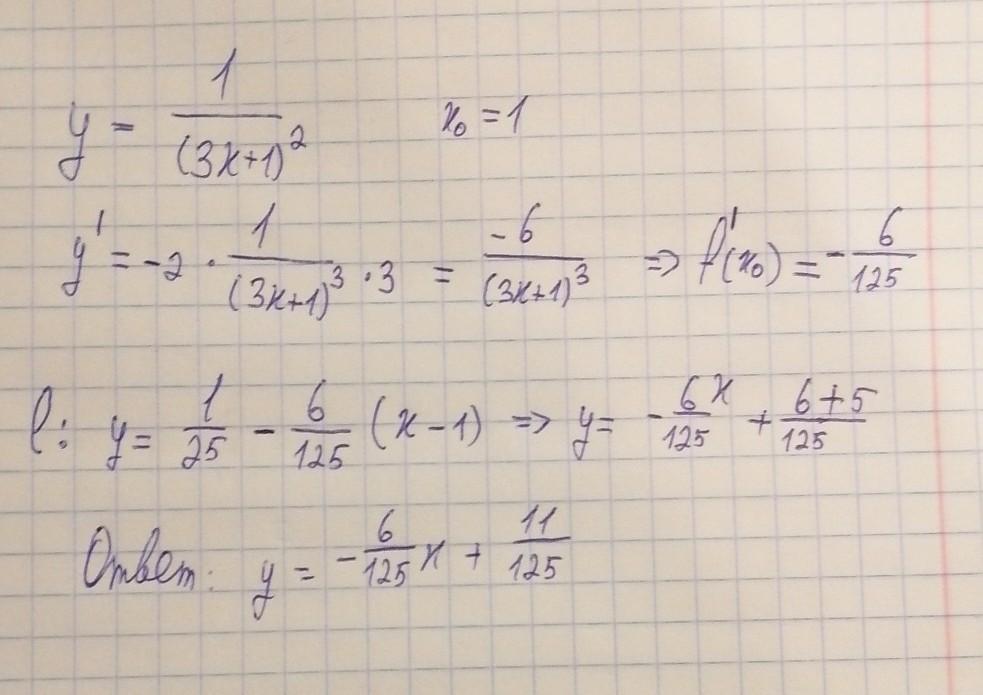 y = 1/(3x+1)² x₀ = 1
y' = -2 · 1/(3x+1)³ · 3 = -6/(3x+1)³ ⇒ f'(x₀) = -6/125
l: y = 1/25 - 6/125 (x-1) ⇒ y = -6x/125 + (6+5)/125
Ответ: y = -6/125 x + 11/125